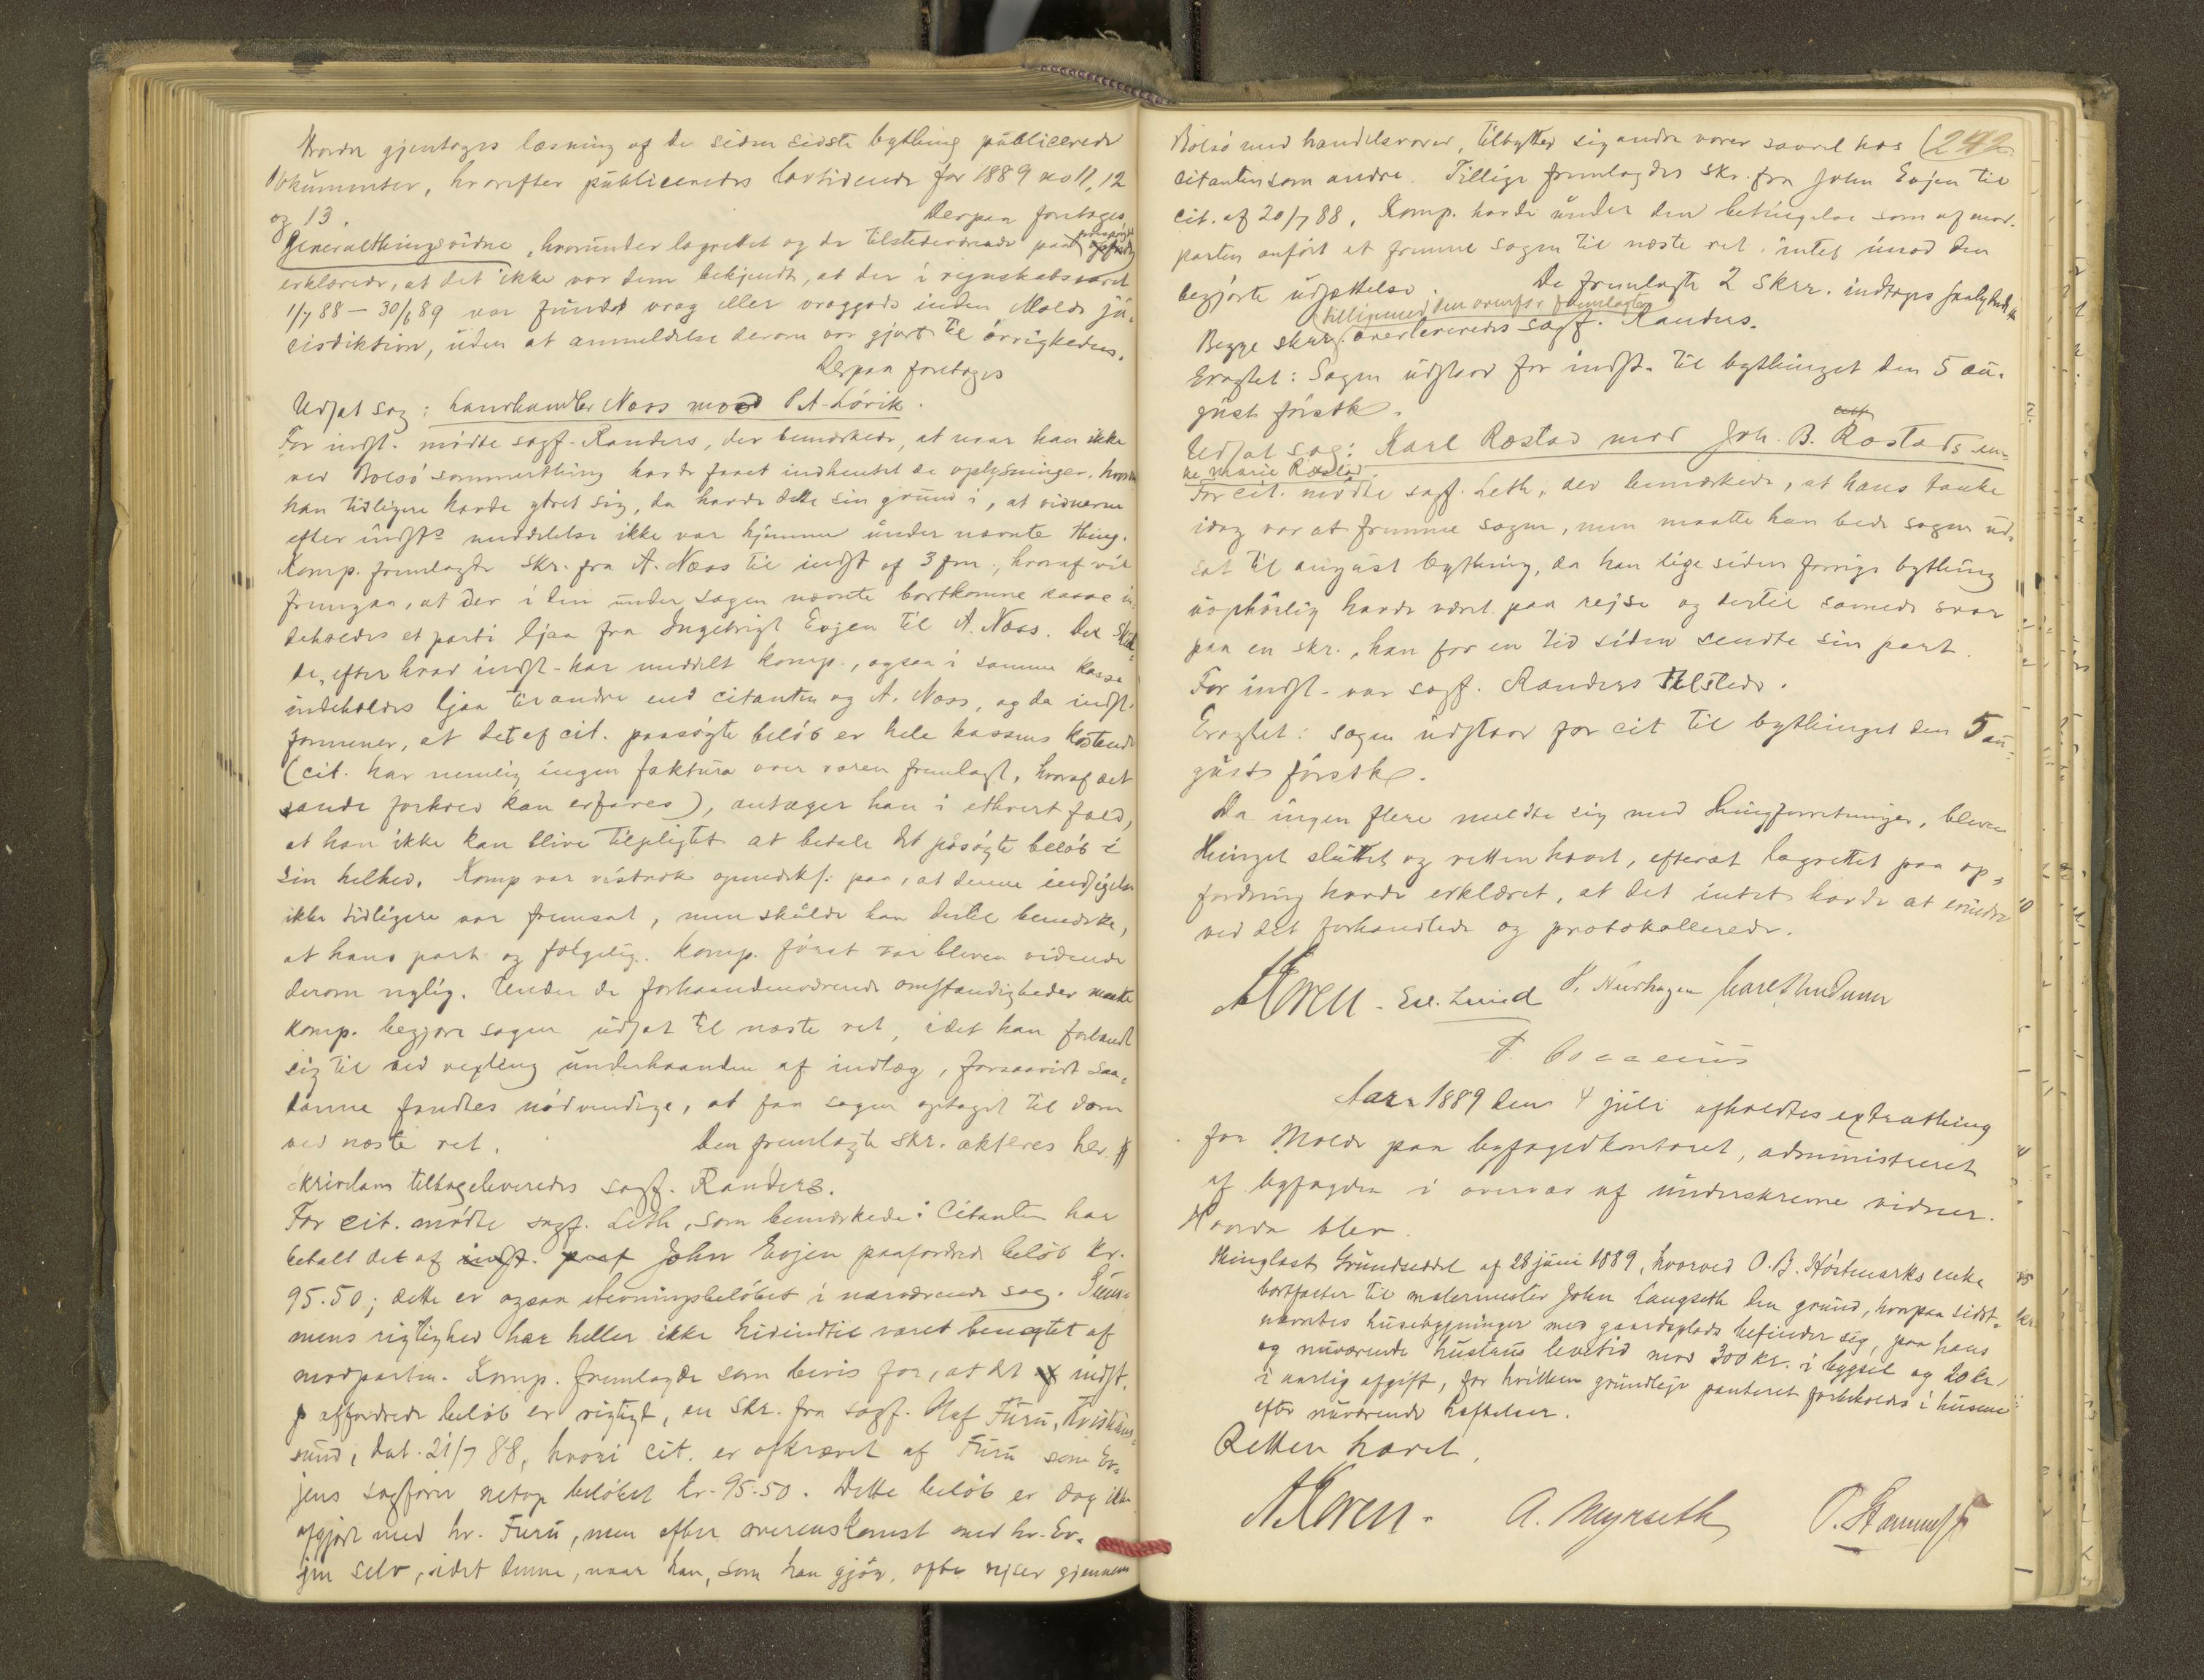 Hvorda gjentoges læsning af de siden sidste bything publicerede
dokumenter, hvorefter publiceredes lovtidende for 1889 no 11, 12
og 13. Derpaa foretoges
Generalthingsvidne, hvorunder lagrettet og de tilstedeværende paa
erklærede, at det ikke var dem bekjendt, at der i regnskabsaaret
1/7 88 – 30/6 89 var fundet vrag eller vraggods inden Molde ju-
risdiktion, uden at anmeldelse derom var gjort til øvrigheden.
Derpaa foretoges
Udsat sag: Landhandler Næss mod P. A. Lørik.
For indst. mødte sagf. Randers, der bemærkede, at naar han ikke
ved Bolsø sommerthing havde faaet indhentet de oplysninger, hvorom
han tidligere havde ytret sig, da havde dette sin grund i, at vidnerne
efter indsts meddelelse ikke var hjemme under nævnte thing.
Komp. fremlagde skr. fra A. Næss til indst af 3 , hvoraf vil
fremgaa, at der i den under sagen nævnte bortkomne kasse in-
deholdes et parti ljaa fra Ingebrigt Evjen til A. Næss. Der skul-
de, efter hvad indst. har meddelt komp., ogsaa i samme kasse
indeholdes ljaa til andre end citanten og A. Næss, og da indst.
formener, at det af cit. paasøgte beløb er hele kassens kostende
(cit. har nemlig ingen faktura over varen fremlagt, hvoraf det
sande forhold kan erfares), antager han i ethvert fald,
at han ikke kan blive tilpligtet at betale det påsøgte beløb i
sin helhed. Komp var vistnok opmerksf. paa, at denne indsigelse
ikke tidligere var fremsat, men skulde han dertil bemærke,
at hans part og følgelig komp. først var bleven vidende
derom nylig. Under de forhaandenværende omstændigheder maatte
komp. begjære sagen udsat til næste ret, idet han forbandt
sig til ved vexling underhaanden af indlæg, forsaavidt saa-
danne fandtes nødvendige, at faa sagen optaget til dom
ved næste ret. Den fremlagte skr. akteres her.
Skrivelsen tilbageleveredes sagf. Randers.
For cit. mødte sagf. Leth, som bemærkede: Citanten har
betalt det af indst. part John Evjen paafordrede beløb kr.
95.50; dette er ogsaa stevningsbeløbet i nærværende sag. Sum-
mens rigtighed har heller ikke hidindtil været benegtet af
modparten. Komp. fremlagde som bevis for, at det af indst.
affordrede beløb er rigtigt, en skr. fra sagf. Olaf Furu, Kristians-
sund, dat. 21/7 88, hvori cit. er afkrævet af Furu som Ev-
jens sagfører netop beløbet kr. 95.50. Dette beløb er dog ikke
afgjort med hr. Furu, men efter overenskomst med hr. Ev-
jen selv, idet denne, naar han, som han gjør, ofte rejser gjennem
Bolsø med handelsvarer, tilbytter sig andre varer saavel hos (242
citanten som andre. Tillige fremlagdes skr. fra John Evjen til
cit. af 20/7 88. Komp. havde under den betingelse som af mod-
parten anført at fremme sagen til næste ret intet imod den
begjærte udsættelse. De fremlagte 2 skrr. indtages
tilligemed den ovenfor fremlagte
Begge skrr. overleveredes sagf. Randers.
Eragtet: Sagen udstaar for indst. til bythinget den 5 au-
gust førstk.
Udsat sag: Karl Røstad mod Joh. B. Røstads en-
ke Marie Røstad.
For cit. mødte sagf. Leth, der bemærkede, at hans tanke
idag var at fremme sagen, men maatte han bede sagen ud-
sat til august bything, da han lige siden forrige bything
uophørlig havde været paa rejse og dertil savnede svar
paa en skr., han for en tid siden sendte sin part.
For indst. var sagf. Randers tilstede.
Eragtet: sagen udstaar for cit til bythinget den 5 au-
gust førstk.
Da ingen flere meldte sig med thingforretninger, bleve
thinget sluttet og retten hævet, efterat lagrettet paa op-
fordring havde erklæret, at det intet havde at erindre
ved det forhandlede og protokollerede.
AKoren. Ed. Lund
Aar 1889 den 4 juli afholdtes extrathing
for Molde paa byfogedkontoret, administreret
af byfogden i overvær af underskrevne vidner.
Hvorda blev
thinglæst Grundseddel af 28 juni 1889, hvorved O. B. Høstmarks enke
bortfæster til malermester John Langseth den grund, hvorpaa sidst-
nævntes husebygninger med gaardsplads befinder sig, paa hans
og nuværende hustrus levetid mod 300 kr. i bygsel og 20 kr.
i aarlig afgift, for hvilken grundleje panteret forbeholdes i husene
efter nuværende heftelser.
Retten hævet.
AKoren. A. Myrseth